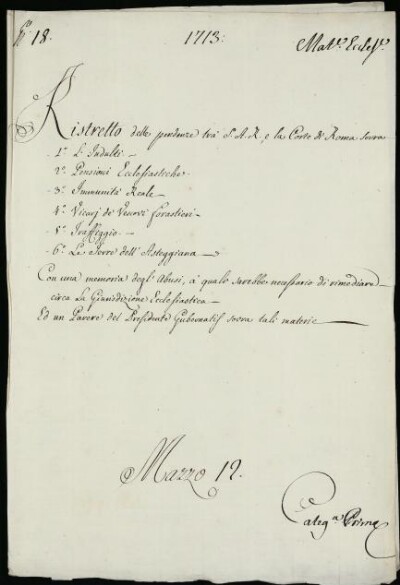 N.° 18.
1713:
Mat.e Eccles.e
Ristretto delle pendenze trà S. A. R. e la Corte di Roma sovra
1.° L'Indulti
2.° Pensioni Ecclesiastiche
3.° Immunità Reale
4.° Vicarj de Vescovi forastieri
5.° Tratteggio
6.° Le Terre dell'Asteggiana
Con una memoria degl'Abusi, à quali sarebbe necessario di rimediare
circa La Giurisdizione Ecclesiastica
Ed un Parere del Presidente Gubernatis sovra tali materie
Mazzo 12.
Categ.a Prima